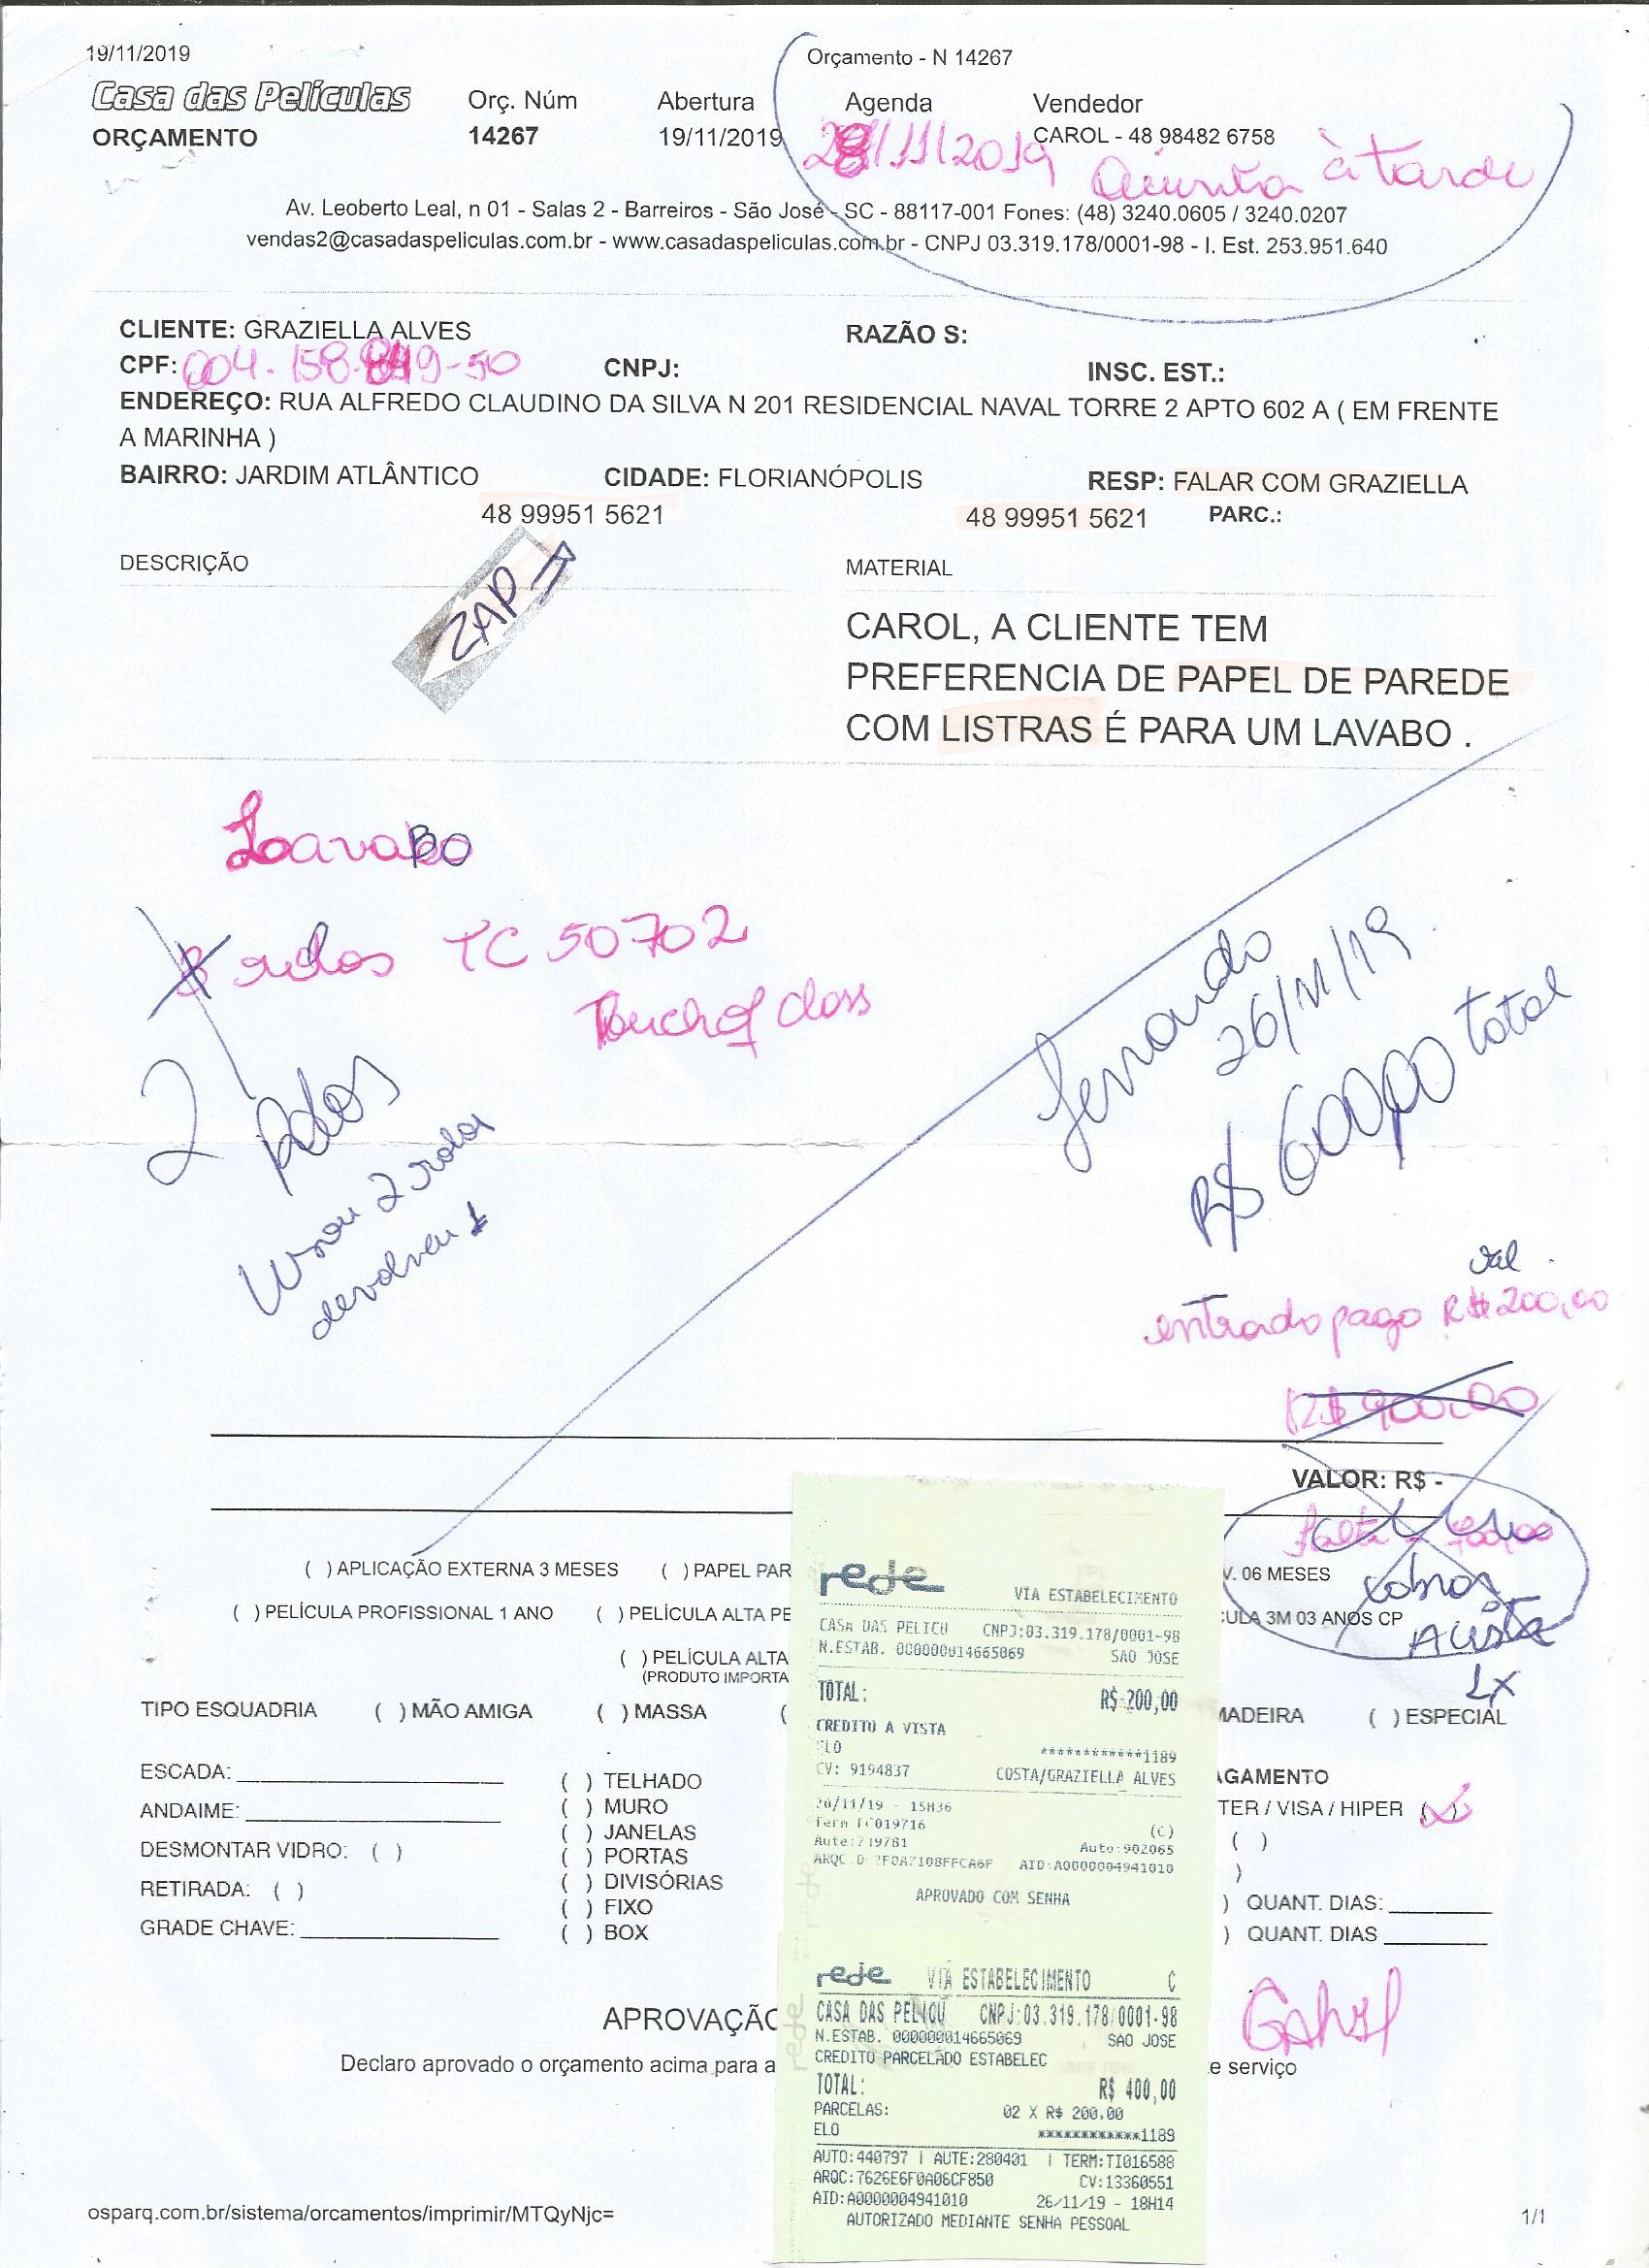 19/11/2019
Orçamento - N 14267
Casa das Películas
Orç. Núm
Abertura
Agenda
Vendedor
ORÇAMENTO
14267
19/11/2019
/11/2019
CAROL - 48 98482 6758
à tarde
Av. Leoberto Leal, n 01 - Salas 2 - Barreiros - São José - SC - 88117-001 Fones: (48) 3240.0605 / 3240.0207
vendas2@casadaspeliculas.com.br - www.casadaspeliculas.com.br - CNPJ 03.319.178/0001-98 - I. Est. 253.951.640
CLIENTE: GRAZIELLA ALVES
RAZÃO S:
CPF: 004.158.849-50
CNPJ:
INSC. EST.:
ENDEREÇO: RUA ALFREDO CLAUDINO DA SILVA N 201 RESIDENCIAL NAVAL TORRE 2 APTO 602 A ( EM FRENTE
A MARINHA )
BAIRRO: JARDIM ATLÂNTICO
CIDADE: FLORIANÓPOLIS
RESP: FALAR COM GRAZIELLA
48 99951 5621
48 99951 5621
PARC.:
DESCRIÇÃO
ZAP
MATERIAL
CAROL, A CLIENTE TEM
PREFERENCIA DE PAPEL DE PAREDE
COM LISTRAS É PARA UM LAVABO .
Lavabo
rolos TC 50702
Touch of class
2 rolos
Usou 2 rolos
devolveu 1
Fernando
26/11/19
R$ 600,00 total
entrada pago R$ 200,00
R$ 900,00
VALOR: R$ -
Falta 700,00
cobrar
1x
( ) APLICAÇÃO EXTERNA 3 MESES
( ) PAPEL PAR
V. 06 MESES
( ) PELÍCULA PROFISSIONAL 1 ANO
( ) PELÍCULA ALTA PE
CULA 3M 03 ANOS CP
( ) PELÍCULA ALTA
(PRODUTO IMPORTA
TIPO ESQUADRIA
( ) MÃO AMIGA
( ) MASSA
(
MADEIRA
( ) ESPECIAL
ESCADA:
ANDAIME:
DESMONTAR VIDRO: ( )
RETIRADA: ( )
GRADE CHAVE:
( ) TELHADO
( ) MURO
( ) JANELAS
( ) PORTAS
( ) DIVISÓRIAS
( ) FIXO
( ) BOX
AGAMENTO
TER / VISA / HIPER (X)
( )
)
) QUANT. DIAS:
) QUANT. DIAS
rede
VIA ESTABELECIMENTO
CASA DAS PELICU CNPJ:03.319.178/0001-98
N.ESTAB. 000000014665069 SAO JOSE
TOTAL: R$ 200,00
CREDITO A VISTA
ELO ************1189
CV: 9194837 COSTA/GRAZIELLA ALVES
20/11/19 - 15H36
(C)
Auto:902065
AID:A0000004941010
APROVADO COM SENHA
rede VIA ESTABELECIMENTO C
CASA DAS PELICU CNPJ:03.319.178/0001-98
N.ESTAB. 000000014665069 SAO JOSE
CREDITO PARCELADO ESTABELEC
TOTAL: R$ 400,00
PARCELAS: 02 X R$ 200,00
ELO ************1189
AUTO:440797 | AUTE:280401 | TERM:TI016588
ARQC:7626E6F0A06CF850 CV:13360551
AID:A0000004941010 26/11/19 - 18H14
AUTORIZADO MEDIANTE SENHA PESSOAL
APROVAÇÃO
Declaro aprovado o orçamento acima para a
e serviço
osparq.com.br/sistema/orcamentos/imprimir/MTQyNjc=
1/1